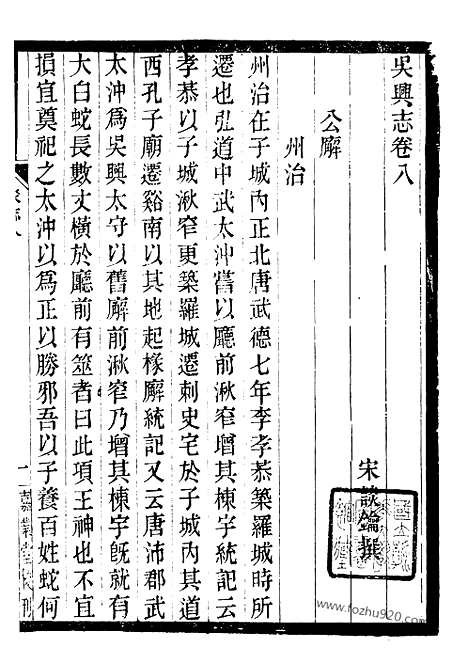 吳興志卷八
宋談鑰撰
公廨
州治
州治在子城內正北唐武德七年李孝恭築羅城時所
遷也弘道中武太沖嘗以廳前湫窄增其棟宇統記云
孝恭以子城湫窄更築羅城遷刺史宅於子城內其道
西孔子廟遷谿南以其地起椽廨統記又云唐沛郡武
太沖爲吳興太守以舊廨前湫窄乃增其棟宇旣就有
大白蛇長數丈橫於廳前有筮者曰此項王神也不宜
損宜奠祀之太沖以爲正以勝邪吾以子養百姓蛇何
嘉業堂校刊
www.fozhu920.com